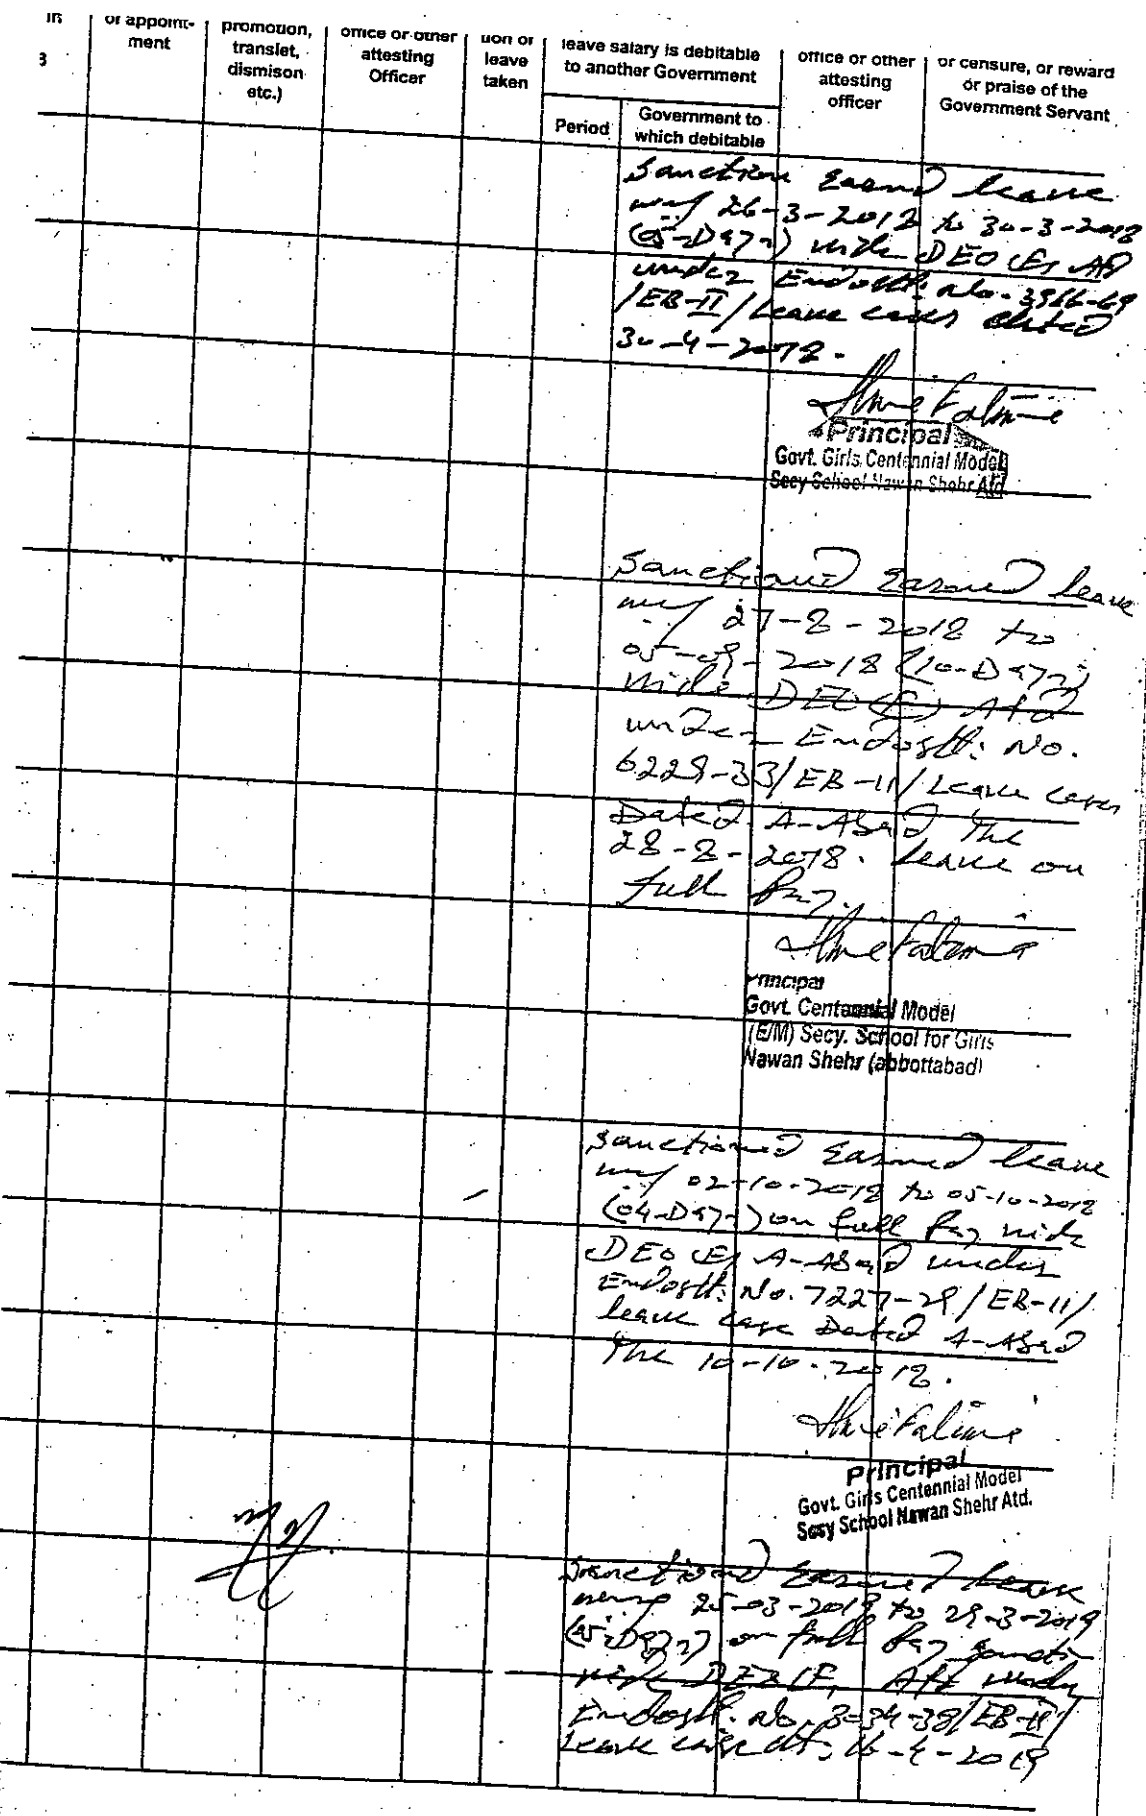 in
3
of appoint-
ment
promotion,
translet,
dismison
etc.)
office or other
attesting
Officer
tion of
leave
taken
leave salary is debitable
to another Government
Period
Government to
which debitable
office or other
attesting
officer
or censure, or reward
or praise of the
Government Servant
Sanction Earned leave
wef 26-3-2018 to 30-3-2018
(05-Days) vide DEO (F) Atd
under Endostt: No. 3966-69
/EB-II/Leave cases dated
30-4-2018.
Principal
Govt. Girls Centennial Model
Secy School Nawan Shehr Atd
Sanctioned Earned leave
wef 27-8-2018 to
05-09-2018 (10-Days)
vide DEO (F) Atd
under Endostt: No.
6229-33/EB-11/Leave cases
Dated A-Abad The
28-8-2018. Leave on
full Pay.
Principal
Govt. Centennial Model
(E/M) Secy. School for Girls
Nawan Shehr (abbottabad)
Sanctioned Earned leave
wef 02-10-2018 to 05-10-2018
(04-Days) on full Pay vide
DEO (F) A-Abad under
Endostt: No. 7227-29/EB-11/
leave case Dated A-Abad
The 10-10-2018.
Principal
Govt. Girls Centennial Model
Secy School Nawan Shehr Atd.
Sanctioned Earned leave
25-03-2019 to 29-3-2019
(05-Days) on full Pay
vide DEO (F) Atd under
Endostt: No. 3-34-38/EB-II/
Leave case dt. 16-4-2019